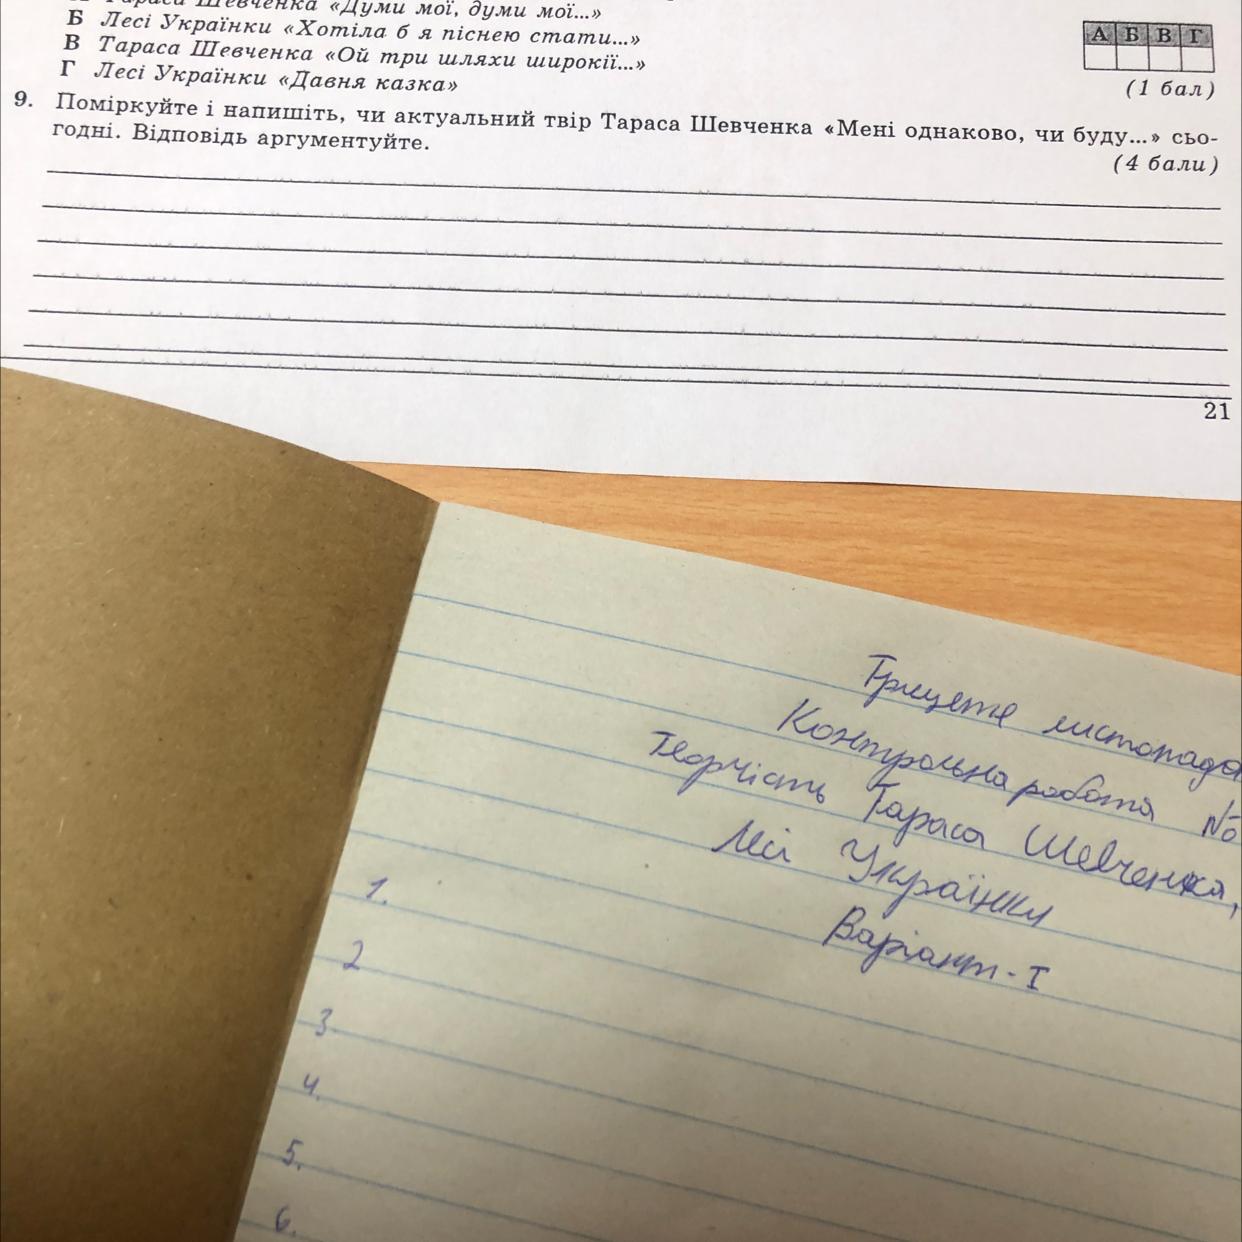 Тараса Шевченка «Думи мої, думи мої...»
Б Лесі Українки «Хотіла б я піснею стати...»
В Тараса Шевченка «Ой три шляхи широкії...»
Г Лесі Українки «Давня казка»
А Б В Г
(1 бал)
9. Поміркуйте і напишіть, чи актуальний твір Тараса Шевченка «Мені однаково, чи буду...» сьо-
годні. Відповідь аргументуйте.
(4 бали)
21
Трицяте листопада
Контрольна робота №
Творчість Тараса Шевченка,
Лесі Українки
Варіант-I
1.
2
3
4.
5.
6.